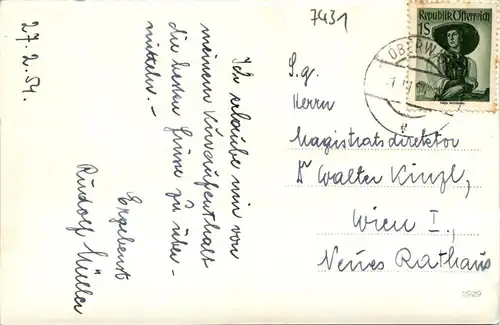 27.2.54.
Ich erlaube mir von
meinem Kuraufenthalt
die besten Grüsse zu über-
mitteln. -
Ergebenst
Rudolf Müller
7431
Republik Österreich
1S
OBERW
S.g.
Herrn
Magistratsdirektor
Dr Walter Kinzl,
Wien I.,
Neues Rathaus
2929